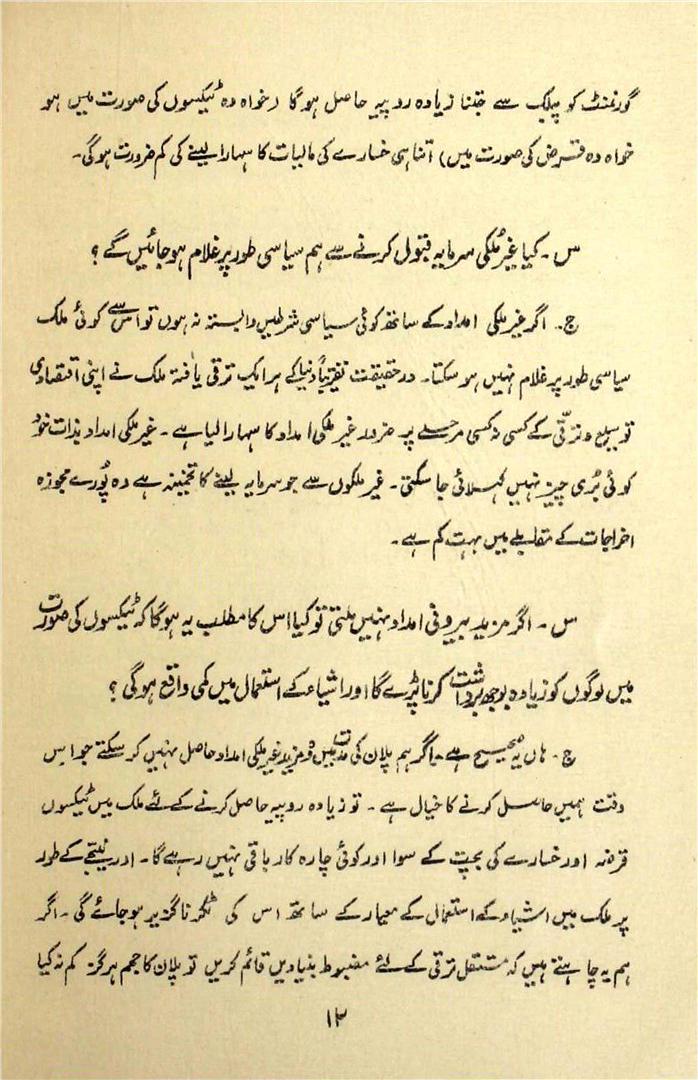 گورنمنٹ کو پبلک سے جتنا زیادہ روپیہ حاصل ہوگا (خواہ وہ ٹیکسوں کی صورت میں ہو
خواہ وہ قرض کی صورت میں) اتنا ہی خسارے کی مالیات کا سہارا لینے کی کم ضرورت ہوگی۔
س۔ کیا غیر ملکی سرمایہ قبول کرنے سے ہم سیاسی طور پر غلام ہوجائیں گے؟
ج۔ اگر غیر ملکی امداد کے ساتھ کوئی سیاسی شرطیں وابستہ نہ ہوں تو اس سے کوئی ملک
سیاسی طور پر غلام نہیں ہوسکتا۔ درحقیقت تقریباً دنیا کے ہر ایک ترقی یافتہ ملک نے اپنی اقتصادی
توسیع و ترقی کے کسی نہ کسی مرحلے پر ضرور غیر ملکی امداد کا سہارا لیا ہے۔ غیر ملکی امداد بذات خود
کوئی بُری چیز نہیں کہلائی جاسکتی۔ غیر ملکوں سے جو سرمایہ لینے کا تخمینہ ہے وہ پُورے مجوزہ
اخراجات کے مقابلے میں بہت کم ہے۔
س۔ اگر مزید بیرونی امداد نہیں ملتی تو کیا اس کا مطلب یہ ہوگا کہ ٹیکسوں کی صورت
میں لوگوں کو زیادہ بوجھ برداشت کرنا پڑے گا اور اشیاء کے استعمال میں کمی واقع ہوگی؟
ج۔ ہاں یہ صحیح ہے۔ اگر ہم پلان کی مدت میں وہ مزید غیر ملکی امداد حاصل نہیں کرسکتے جو اس
وقت ہمیں حاصل کرنے کا خیال ہے۔ تو زیادہ روپیہ حاصل کرنے کے لئے ملک میں ٹیکسوں
قرضہ اور خسارے کی بچت کے سوا اور کوئی چارہ کار باقی نہیں رہے گا۔ اور نتیجے کے طور
پر ملک میں اشیاء کے استعمال کے معیار کے ساتھ اس کی ٹکر ناگزیر ہوجائے گی۔ اگر
ہم یہ چاہتے ہیں کہ مستقل ترقی کے لئے مضبوط بنیادیں قائم کریں تو پلان کا حجم ہرگز کم نہ کیا
۱۳